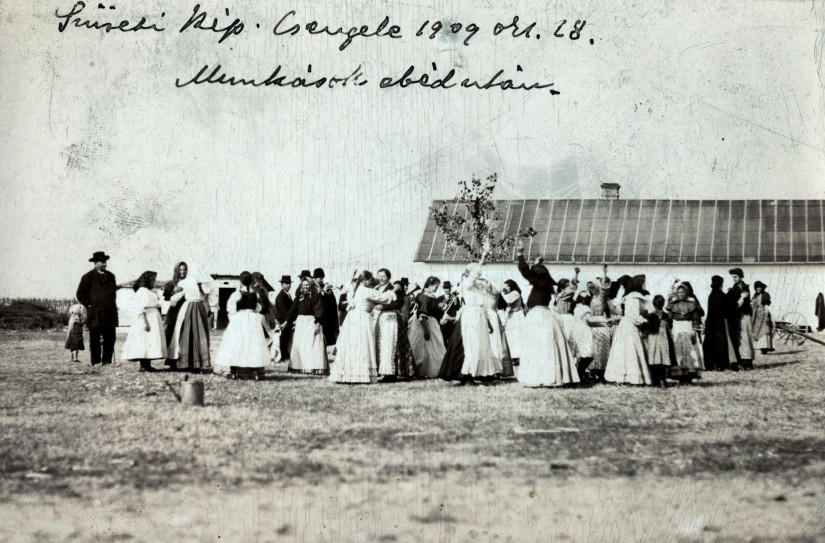 Szüreti kép. Csengele 1909 okt. 28.
Munkások ebéd után.